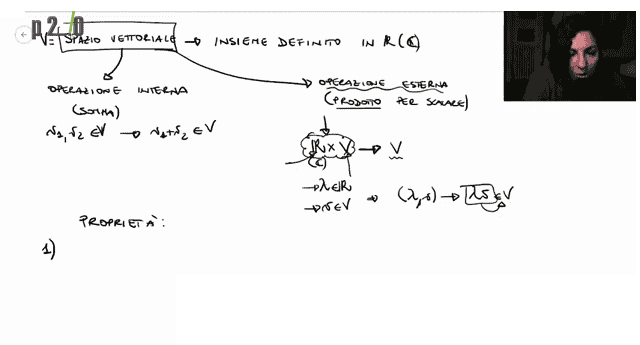 p 2./0
V = SPAZIO VETTORIALE → INSIEME DEFINITO IN ℝ (ℂ)
OPERAZIONE INTERNA
(SOMMA)
v1, v2 ∈ V → v1+v2 ∈ V
OPERAZIONE ESTERNA
(PRODOTTO PER SCALARE)
ℝ x V → V
(ℂ)
→ λ ∈ ℝ
→ v ∈ V → (λ, v) → λv ∈ V
PROPRIETÀ:
1)